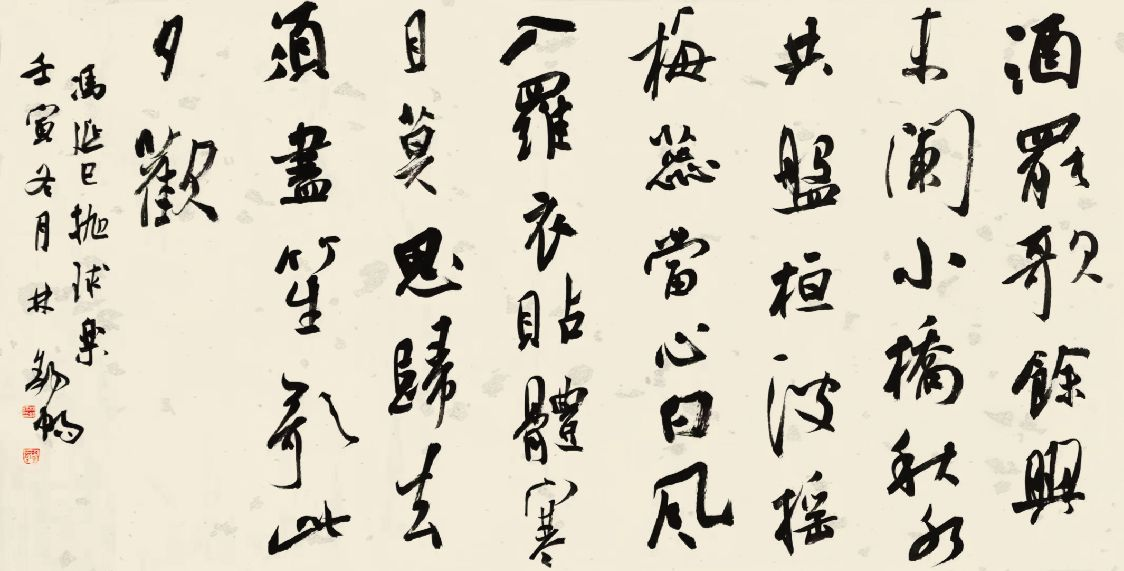 酒罷歌餘興
未闌小橋秋水
共盤桓波摇
梅蕊當心白風
入羅衣貼體寒
且莫思歸去
須盡笙歌此
夕歡
馮延巳抛球樂
壬寅冬月林